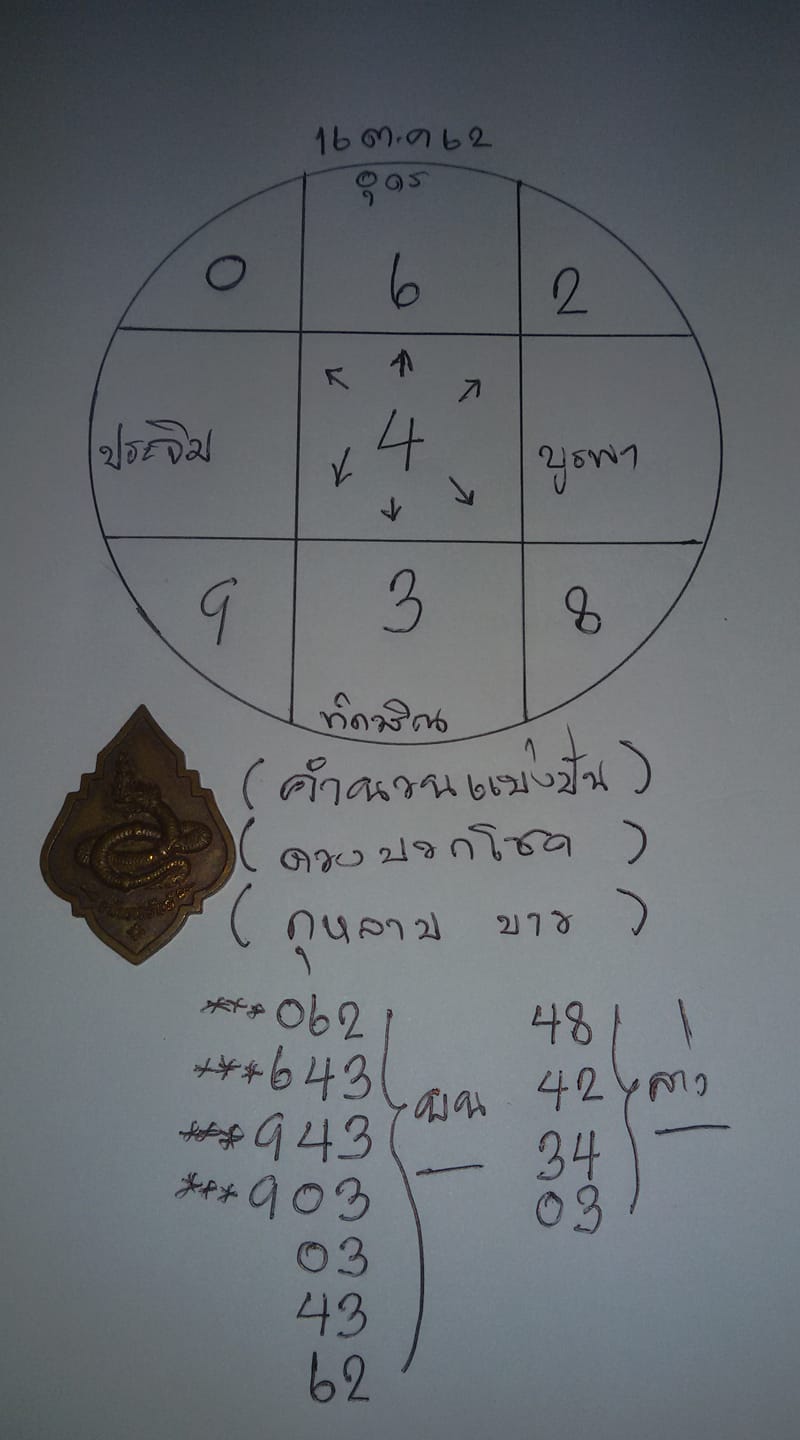 16 ต.ค 62
อุดร
0 6 2
ประจิม 4 บูรพา
9 3 8
ทักษิณ
(คำนวนแบ่งปัน)
(ดวงบอกโชค)
(กุหลาบ ขาว)
***062
***643
***943
***903
03
43
62
บน
48
42
34
03
ล่าง